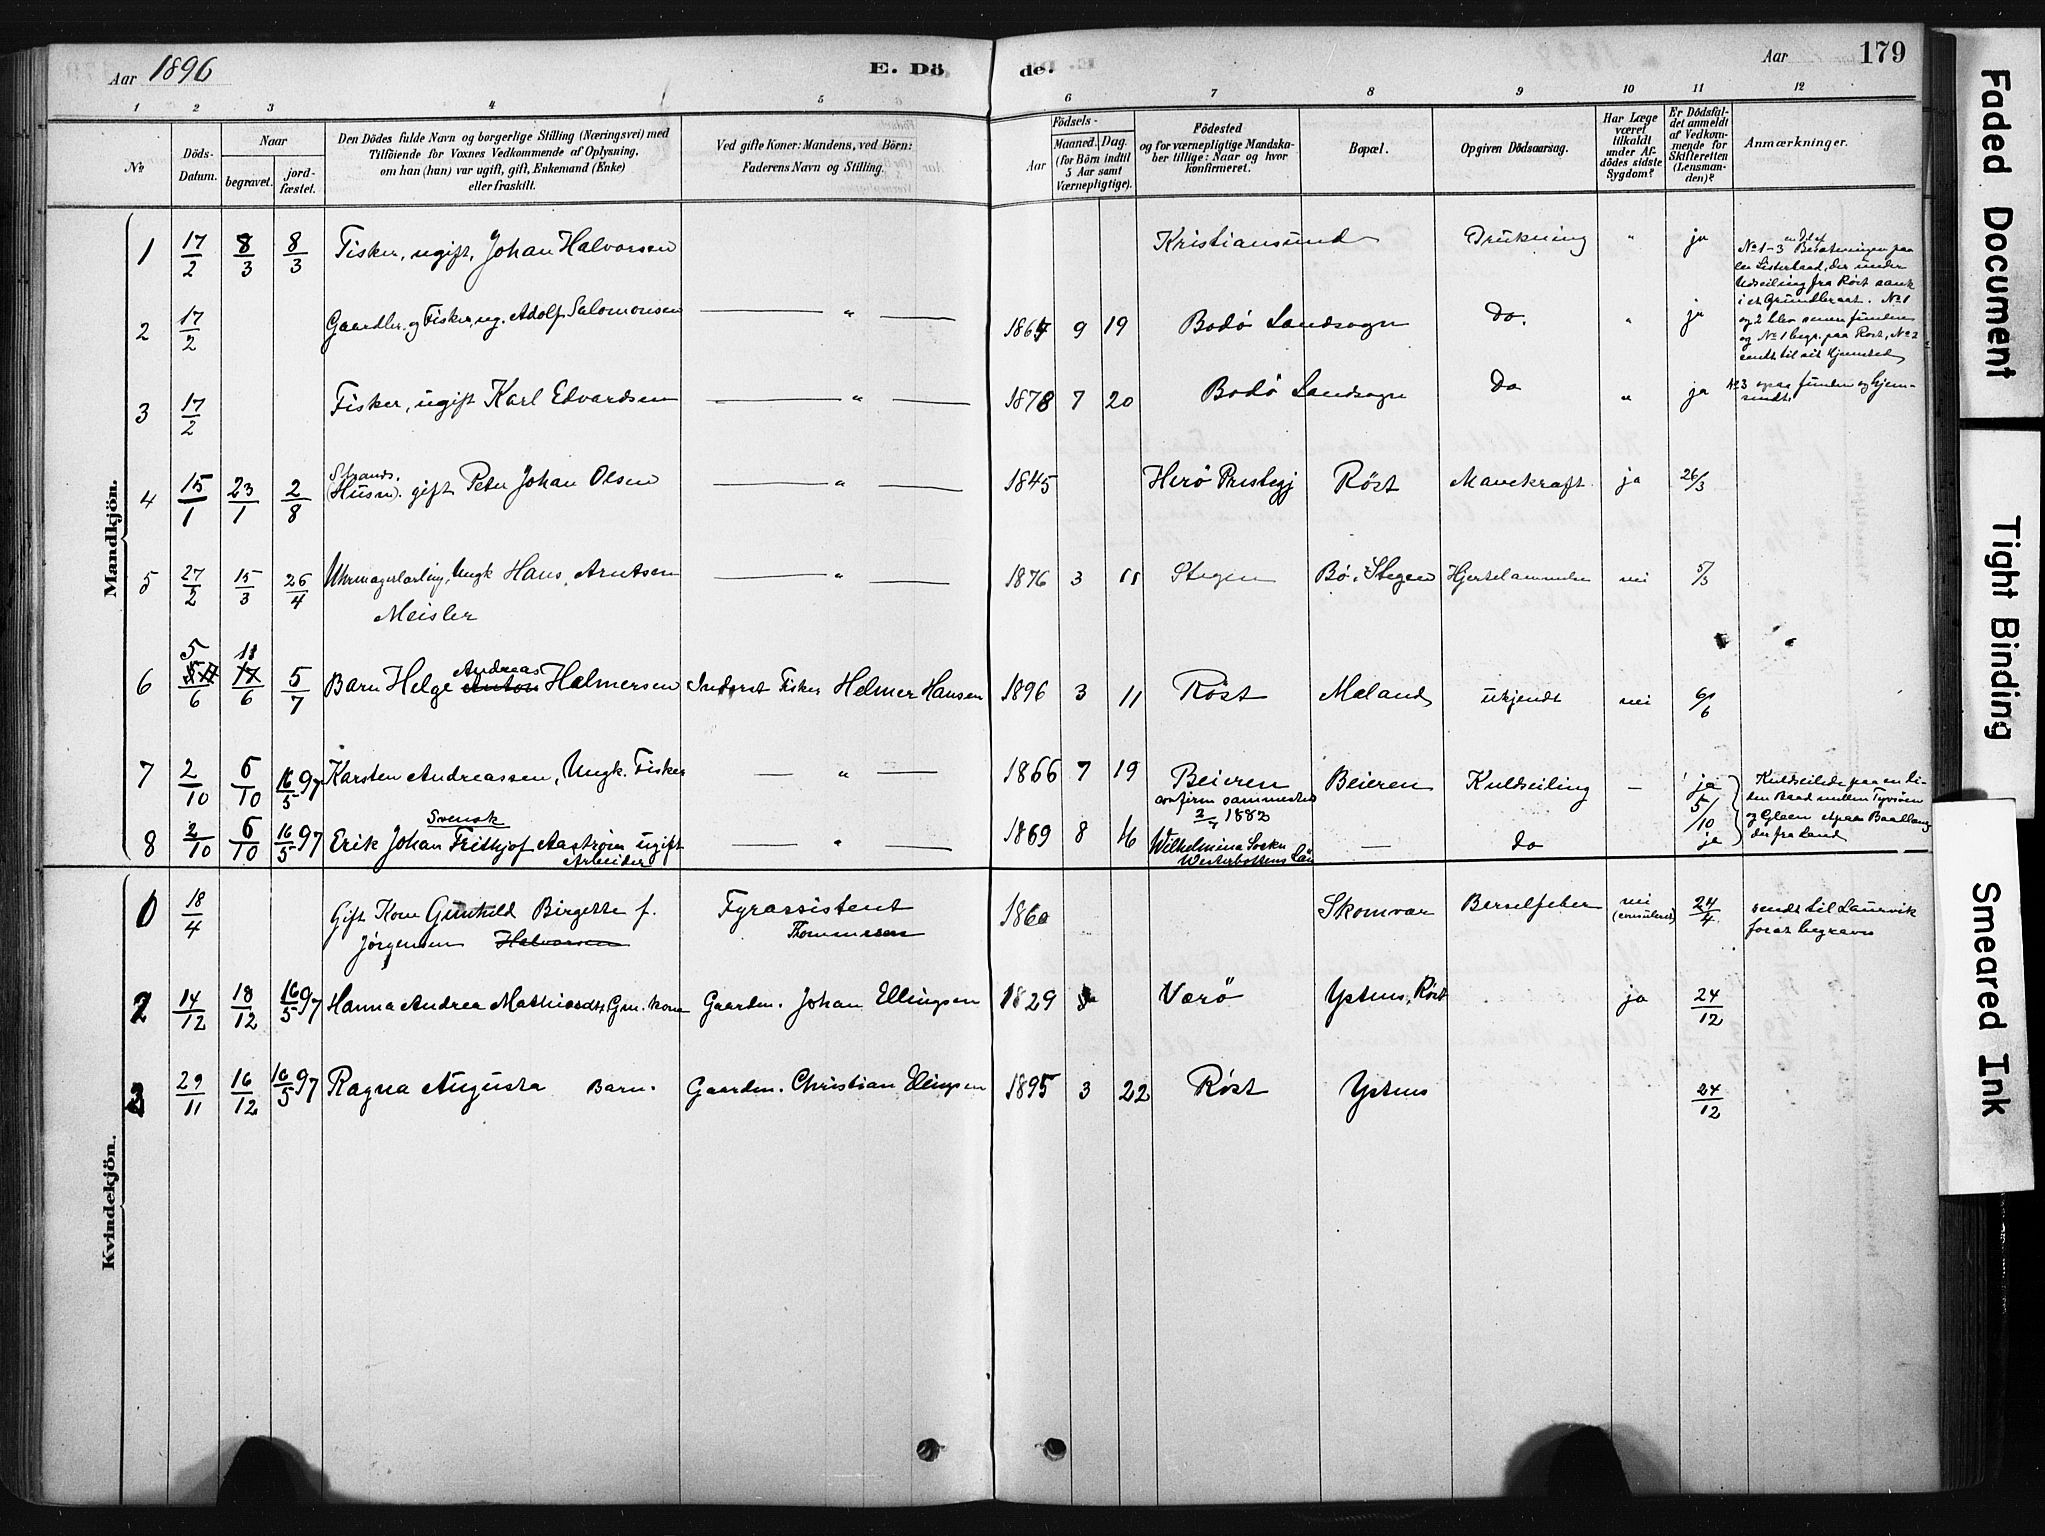 Aar 1896
E. Dö
de.
Aar
179
1 2 3 4 5 6 7 8 9 10 11 12
No
Döds-Datum.
Naar
begravet.
jord-fæstet.
Den Dödes fulde Navn og borgerlige Stilling (Næringsvei) med
Tilföiende for Voxnes Vedkommende af Oplysning,
om han (hun) var ugift, gift, Enkemand (Enke)
eller fraskilt.
Ved gifte Koner: Mandens, ved Börn:
Faderens Navn og Stilling.
Födsels-
Aar
Maaned. Dag.
(for Börn indtil
5 Aar samt
Værnepligtige).
Födested
og for værnepligtige Mandska-
ber tillige: Naar og hvor
konfirmeret.
Bopæl.
Opgiven Dödsaarsag.
Har Læge
været
tilkaldt
under Af-
dödes sidste
Sygdom?
Er Dödsfal-
det anmeldt
af Vedkom-
mende for
Skifteretten
(Lensman-
den)?
Anmærkninger.
Mandkjön.
1 17/2 8/3 8/3 Fisker, ugift, Johan Halvorsen Kristiansund Drukning " ja
No 1-3 Besætningen paa
en Listerbaad, der under
Udseiling fra Røst sank
i et Grundbraat. No 1
og 2 blev senere fundne
og No 1 begr. paa Røst, No 2
sendt til sit Hjemsted
2 17/2 Gaardbr. og Fisker, ug. Adolf Salomonsen — " — 1867 9 19 Bodø Landsogn Do. " ja
3 17/2 Fisker, ugift Karl Edvardsen — " — 1878 7 20 Bodø Landsogn Do " ja
No 3 ogsaa funden og hjem-
sendt.
4 15/1 23/1 2/8 Strands.
Husm. gift Peter Johan Olsen — " — 1845 Herö Prestegj Röst Mavekræft ja 26/3
5 27/2 15/3 26/4 Uhrmagerlærling, Ungk Hans Arntsen — " — 1876 3 11 Stegen Bö i Stegen Hjertelammelse nei 5/3
Meisler
6 5/6 18/6 5/7 Barn Helge Andreas Anton Helmersen Inderst Fisker Helmer Hansen 1896 3 11 Röst Meland ukjendt nei 6/6
7 2/10 6/10 16/5 97 Karsten Andreassen, Ungk. Fisker — " — 1866 7 19 Beieren Beieren Kuldseiling — ja
confirm sammested
2/7 1882
5/10
Kuldseilede paa en li-
den Baad mellem Tyvsöen
og Gleen
der fra Land
8 2/10 6/10 16/5 97 Svensk
Erik Johan Frithjof Aaström ugift
Arbeider — " — 1869 8 16 Wilhelmina Sockn
Westerbottens Län — do ja
Kvindekjön.
1 18/4 Gift Kone Gunhild Birgette f. Fyrassistent 1860 Skomvær Barselfeber nei 24/4 sendt til Laurvik
Jørgensen Halvorsen Thommesen (consuleret) forat begraves
2 14/12 18/12 16/5 97 Hanna Andrea Mathiasdtr, Gm. kone Gaardm. Johan Ellingsen 1829 Værö Ystnes, Röst ja 24/12
3 29/11 16/12 16/5 97 Ragna Augusta Barn. Gaardm. Christian Ellingsen 1895 3 22 Röst Ystnes 24/12
Faded Document
Tight Binding
Smeared Ink